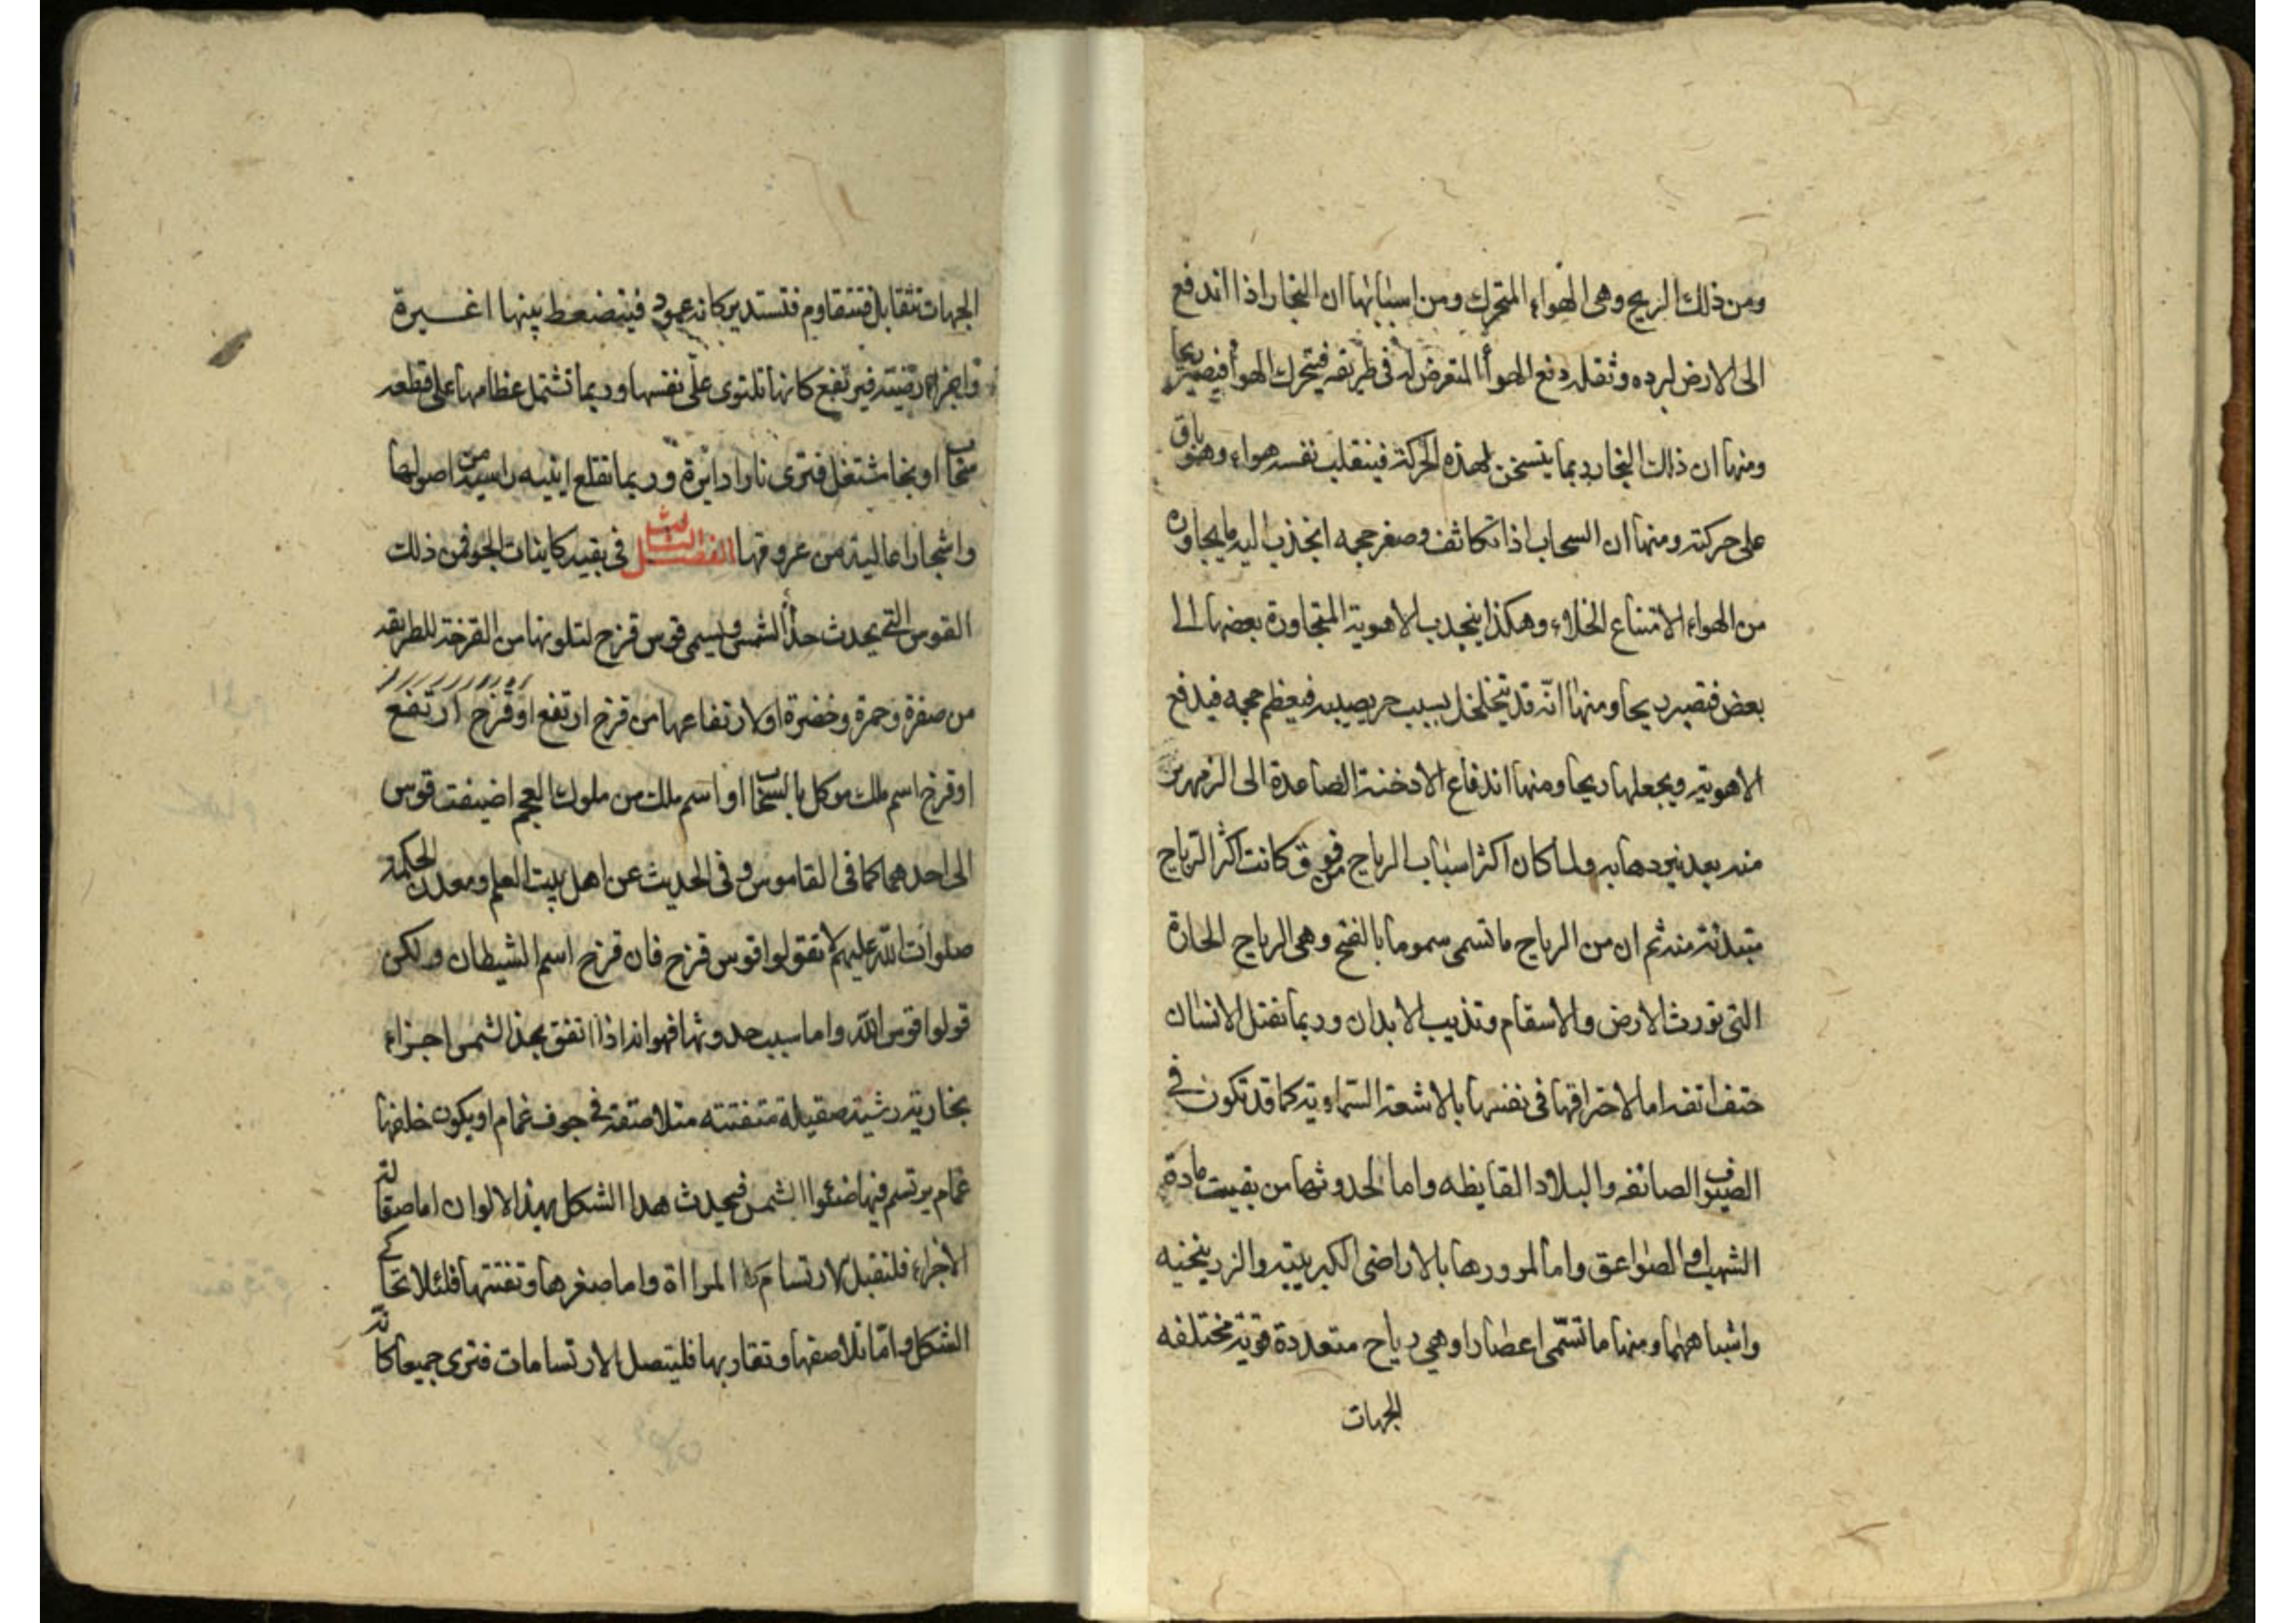 ومن ذلك الريح وهى الهواء المتحرك ومن اسبابها ان البخار اذا اندفع
الى الارض لبرده وثقله دفع الهوأ المتعرض له فى طريقه فيتحرك الهوأ فيصير ريحا
ومنها ان ذلك البخار ربما يتسخن لهذه الحركة فينقلب نفسه هواء وهو باق
على حركته ومنها ان السحاب اذا تكاثف وصغر حجمه انجذب اليه ما يجاوره
من الهواء لامتناع الخلاء وهكذا ينجدب الاهوية المتجاورة بعضها الى
بعض فتصير ريحا ومنها انّه قد يتخلخل بسبب حر يصيبه فيعظم حجمه فيدفع
الاهوية ويجعلها ريحا ومنها اندفاع الادخنة الصاعدة الى الزمهرير
منه بعد برودها به ولما كان اكثر اسباب الرياح من فوق كانت اكثر الرياح
مبتدئة منه ثم ان من الرياح ما تسمى سموما بالفتح وهى الرياح الحارة
التى تورث الارض والاسقام وتذيب الابدان وربما تقتل الانسان
حتف انفه اما لاحتراقها فى نفسها بالاشعة السماوية كما قد تكون فى
الصيوف الصائفه والبلاد القايظه واما لحدوثها من بقيت مادة
الشهب والصواعق واما لمرورها بالاراضى الكبريتيه والزرنيخيه
واشباههما ومنها ما تسّمى اعصارا وهى رياح متعددة قوية مختلفه
الجهات
الجهات تتقابل فتتقاوم فتستدير كانه عمود فينضغط بينها اغبرة
واجزاء ارضيته فيرتفع كانها تلتوى على نفسها وربما تشتمل عظامها على قطعه
سحاب او بخار شتغل فترى نارا دايرة وربما تقلع ابنيه راسيه من اصولها
واشجارا عالية من عروقها الفصل الثالث فى بقيه كاينات الجو فمن ذلك
القوس التى يحدث حذأ الشمس ويسمى قوس قزح لتلونها من القزحة للطريقه
من صفرة وحمرة وخضرة او لارتفاعها من قزح ارتفع او قزح ارتفع
او قزح اسم ملك موكل بالسحاب او اسم ملك من ملوك العجم اضيفت قوس
الى احدهما كما فى القاموس وفى الحديث عن اهل بيت العلم ومعدن الحكمة
صلوات الله عليهم لا تقولوا قوس قزح فان قزح اسم الشيطان ولكن
قولوا قوس الله واما سبب حدوثها فهو انه اذا اتفق بحذ الشمس اجزاء
بخاريه رشيه صقيلة متفتته متلاصقة فى جوف غمام او يكون خلفها
غمام يرتسم فيها ضئوا الشمس فيحدث هدا الشكل بهذا الالوان اما صقالة
الاجزاء فلتقبل الارتسام المراة واما صغرها وتفتتها فلئلا تحاكى
الشكل واما تلاصقها وتقاربها فليتصل الارتسامات فترى جميعا كانه